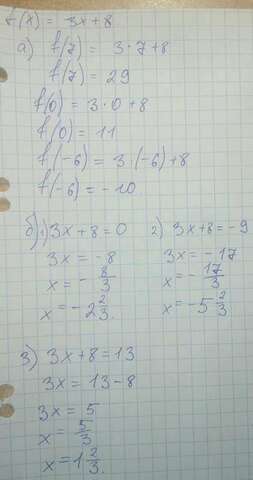 f(x) = 3x+8
а) f(7) = 3·7+8
f(7) = 29
f(0) = 3·0+8
f(0) = 11
f(-6) = 3·(-6)+8
f(-6) = -10.
б) 1) 3x+8=0 2) 3x+8=-9
3x = -8 3x = -17
x = -8/3 x = -17/3
x = -2 2/3. x = -5 2/3
3) 3x+8=13
3x = 13-8
3x = 5
x = 5/3
x = 1 2/3.